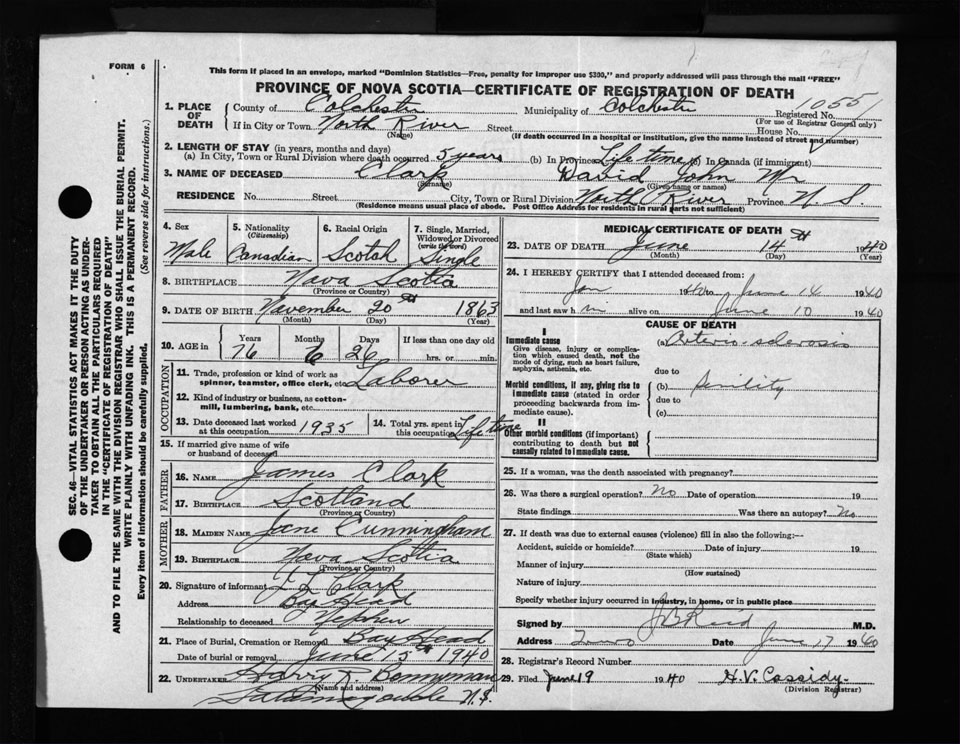 FORM 6
This form if placed in an envelope, marked "Dominion Statistics—Free, penalty for improper use $300," and properly addressed will pass through the mail "FREE"
PROVINCE OF NOVA SCOTIA—CERTIFICATE OF REGISTRATION OF DEATH
1. PLACE OF DEATH County of Colchester Municipality of Colchester Registered No. 1055
(For use of Registrar General only)
If in City or Town North River Street House No.
(Name) (If death occurred in a hospital or institution, give the name instead of street and number)
2. LENGTH OF STAY (in years, months and days)
(a) In City, Town or Rural Division where death occurred 5 years (b) In Province Life time (c) In Canada (if immigrant)
3. NAME OF DECEASED Clark David John Mr
(Surname) (Given name or names)
RESIDENCE No. Street City, Town or Rural Division North River Province N. S.
(Residence means usual place of abode. Post Office Address for residents in rural parts not sufficient)
4. Sex Male
5. Nationality (Citizenship) Canadian
6. Racial Origin Scotch
7. Single, Married, Widowed or Divorced (write the word) Single
8. BIRTHPLACE Nova Scotia
(Province or Country)
9. DATE OF BIRTH November 20th 1863
(Month) (Day) (Year)
10. AGE in Years 76 Months 6 Days 26 If less than one day old hrs. or min.
OCCUPATION
11. Trade, profession or kind of work as spinner, teamster, office clerk, etc. Laborer
12. Kind of industry or business, as cotton-mill, lumbering, bank, etc.
13. Date deceased last worked at this occupation 1935
14. Total yrs. spent in this occupation Life time
15. If married give name of wife or husband of deceased
FATHER
16. NAME James Clark
17. BIRTHPLACE Scotland
(Province or Country)
MOTHER
18. MAIDEN NAME Jane Cunningham
19. BIRTHPLACE Nova Scotia
(Province or Country)
20. Signature of informant Clark
Address Bay Head
Relationship to deceased Nephew
21. Place of Burial, Cremation or Removal Bay Head
Date of burial or removal June 15th 1940
22. UNDERTAKER Harry R. Bennyman
(Name and address)
Tatamagouche N.S.
MEDICAL CERTIFICATE OF DEATH
23. DATE OF DEATH June 14th 1940
(Month) (Day) (Year)
24. I HEREBY CERTIFY that I attended deceased from:
Jan 1940 to June 14 1940
and last saw him alive on June 10 1940
CAUSE OF DEATH
I
Immediate cause
Give disease, injury or complication which caused death, not the mode of dying, such as heart failure, asphyxia, asthenia, etc.
(a) Arterio-sclerosis
due to
Morbid conditions, if any, giving rise to immediate cause (stated in order proceeding backwards from immediate cause).
(b) Senility
due to
(c)
II
Other morbid conditions (if important) contributing to death but not causally related to immediate cause.
25. If a woman, was the death associated with pregnancy?
26. Was there a surgical operation? No Date of operation 19
State findings Was there an autopsy? No
27. If death was due to external causes (violence) fill in also the following:—
Accident, suicide or homicide? Date of injury 19
(State which)
Manner of injury
(How sustained)
Nature of injury
Specify whether injury occurred in industry, in home, or in public place
Signed by M.D.
Address Truro Date June 17 1940
28. Registrar's Record Number
29. Filed June 19 1940 H.V. Cassidy
(Division Registrar)
SEC. 46—VITAL STATISTICS ACT, MAKES IT THE DUTY
OF THE UNDERTAKER OR PERSON ACTING AS UNDERTAKER TO OBTAIN ALL THE PARTICULARS REQUIRED
IN THE "CERTIFICATE OF REGISTRATION OF DEATH"
AND TO FILE THE SAME WITH THE DIVISION REGISTRAR WHO SHALL ISSUE THE BURIAL PERMIT.
WRITE PLAINLY WITH UNFADING INK. THIS IS A PERMANENT RECORD.
Every item of information should be carefully supplied. (See reverse side for instructions.)